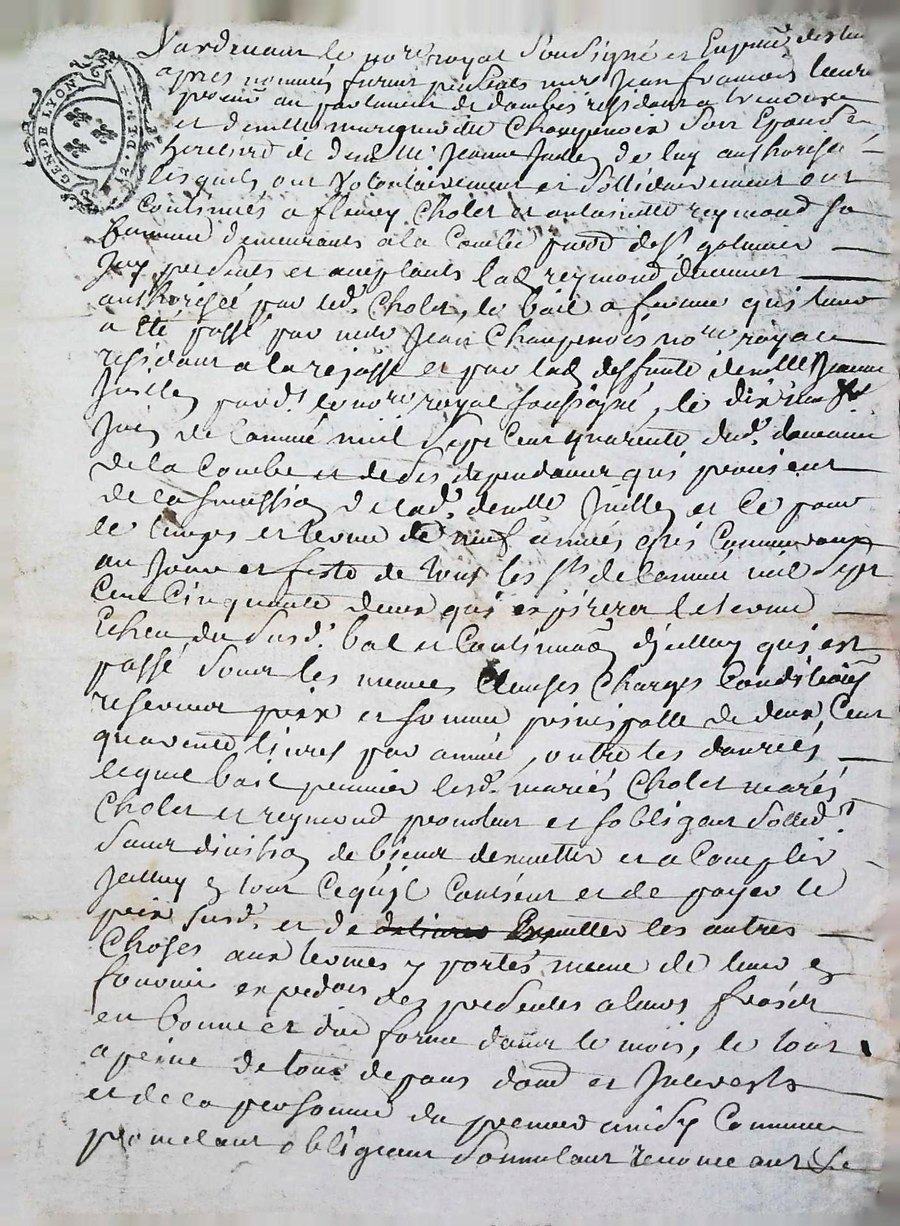 Pardevant le no.re royal Soussigné et En presence des temoins
apres nommés furent presents m.re Jean francois
au parlement de dombes residant a trevoux
et demelle marguerite Champenois Son Epouse
heritiere de demelle Jeanne Juilles de luy authorisée
lesquels ont Volontairement et Sollidairement
Continués a fleury Cholet et antoinette reymond Sa
femme demeurants a la Combe parr. de S.t galmier
Icy presents et acceptants lad. reymond deuement
authorisée par led. Cholet, le bail a ferme qui leur
a été passé par m.re Jean Champenois no.re royal
residant a la rejasse et par lad. deffunte demelle Jeanne
Juilles pard.t le no.re royal Soussigné, le dix neuf
Juin de l'année mil Sept Cent quarente du d. domaine
de la Combe et de Ses dependances qui provient
de la Sucession de lad. demelle Juilles et ce pour
le temps et terme de neuf années qui Commenceront
au Jour et feste de tous les S.ts de l'année mil Sept
Cent Cinquante deux qui expirera le terme
Echeu du Susd. bail et Continuaon d'icelluy qui est
passé Sous les memes Clauses Charges Conditions
reserves prix et Somme principalle de deux Cent
quarente livres par année, outre les danrées
lequel bail premier lesd. mariés Cholet mariés
Cholet et reymond promettent et Sobligent Sollid.t
Sans division de bien executter et acomplir
Jcelluy en tout Ce qu'il Contient et de payer le
prix Susd. et de delivrer Executter les autres
Choses aux termes y portés meme de leur en
fournir expedon des presentes a leurs frais
en bonne et due forme dans le mois, le tout
a peine de tous depans dom. et Interests
et de la personne du premier Comme
promettant obligeant Soumettant renonceant &c
GEN. DE LYON